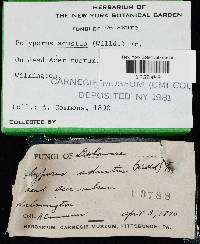 HERBARIUM OF
THE NEW YORK BOTANICAL GARDEN
FUNGI OF DELAWARE
Polyporus adustus (Willd.) Fr.
On dead Acer rubrum.
Wilmington.
CARNEGIE MUSEUM (CM) COLL.
DEPOSITED NY 1981
Coll.: A. Commons, 1890
COLLECTED BY
FUNGI OF Delaware
Polyporus adustus (Willd) Fr
dead Acer rubrum
Wilmington
13788
A Commons April 3, 1890
HERBARIUM, CARNEGIE MUSEUM, PITTSBURGH, PA.